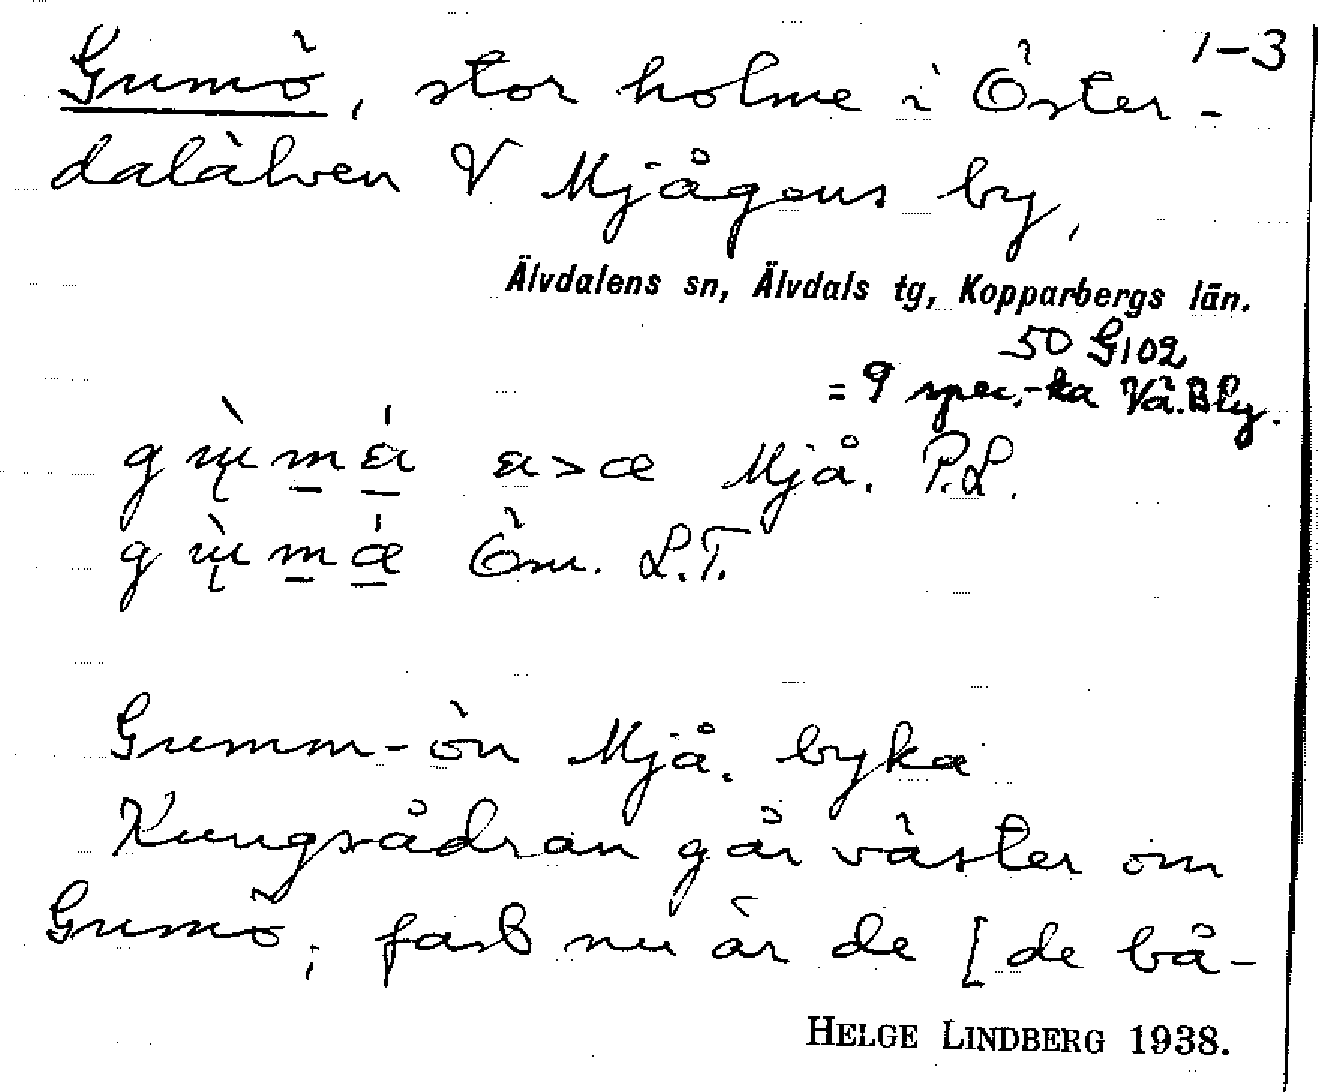 1–3
Gumö, stor holme i Öster-
dalälven V Mjågens by,
Älvdalens sn, Älvdals tg, Kopparbergs län.
50 G102
= 9 spec.-ka Vå.Bly.
Mjå. P.L.
L.T.
Gumm-ön Mjå. byka
Kungsådran går väster om
Gumö, fast nu är de [de bå-
HELGE LINDBERG 1938.